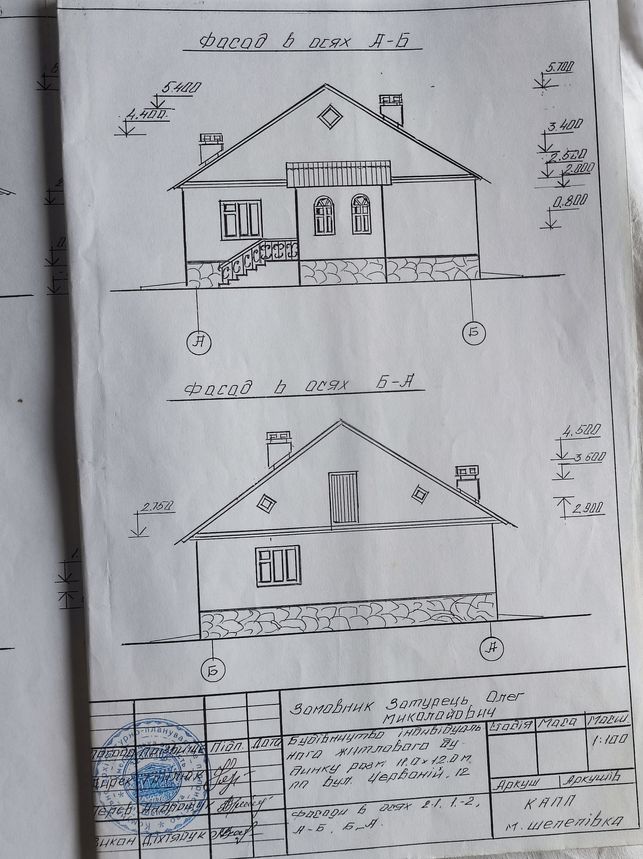 Фасад в осях А-Б
5.400
4.400
5.700
3.400
2.500
2.000
0.800
А
Б
Фасад в осях Б-А
4.500
3.600
2.900
2.750
Б
А
Замовник Затурець Олег
Миколайович
Стадія Маса Масш
Прізвище Підп. Дата
Будівництво індивідуаль
ного житлового бу-
динку розм 11.0х12.0 м.
по вул. Червоній, 12
1:100
Аркуш Аркушів
Фасади в осях 2-1, 1-2,
А-Б, Б-А.
КАПП
м. Шепетівка
Викон Діхтярук